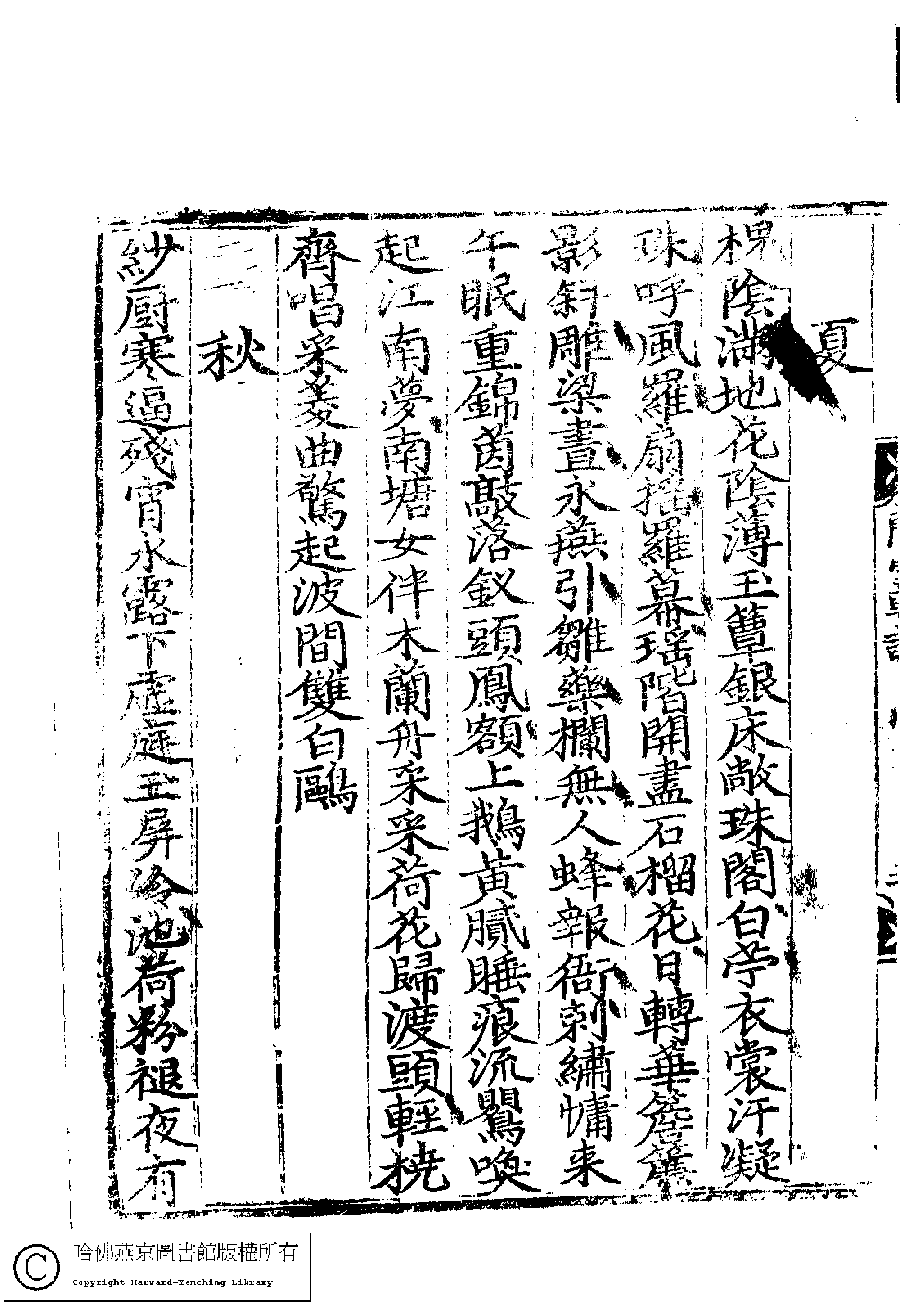 夏
槐陰滿地花陰薄玉簟銀床敞珠閣白苧衣裳汗凝
珠呼風羅扇搖羅幕瑤階開盡石榴花日轉華簷簾
影斜雕梁晝永燕引雛藥欄無人蜂報衙刺繡慵來
午眠重錦茵敲落釵頭鳳額上鵝黃膩睡痕流鸎喚
起江南夢南塘女伴木蘭舟采采荷花歸渡頭輕橈
齊唱采菱曲驚起波間雙白鷗
秋
紗厨寒逼殘宵永露下虛庭玉屏冷池荷粉褪夜有
哈佛燕京圖書館版權所有
Copyright Harvard-Yenching Library